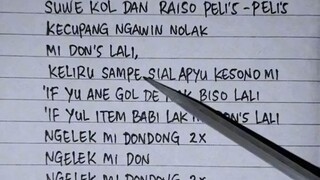 SUWE KOL DAN RAISO PELI'S - PELI'S
KECUPANG NGAWIN NOLAK
MI DON'S LALI,
KELIRU SAMPE SIAL APYU KESONO MI
'IF YU ANE GOL DE K BISO LALI
'IF YUL ITEM BABI LAK M DON'S LALI
NGELEK MI DONDONG 2X
NGELEK MI DON
NGELEK MI DONDONG 2X